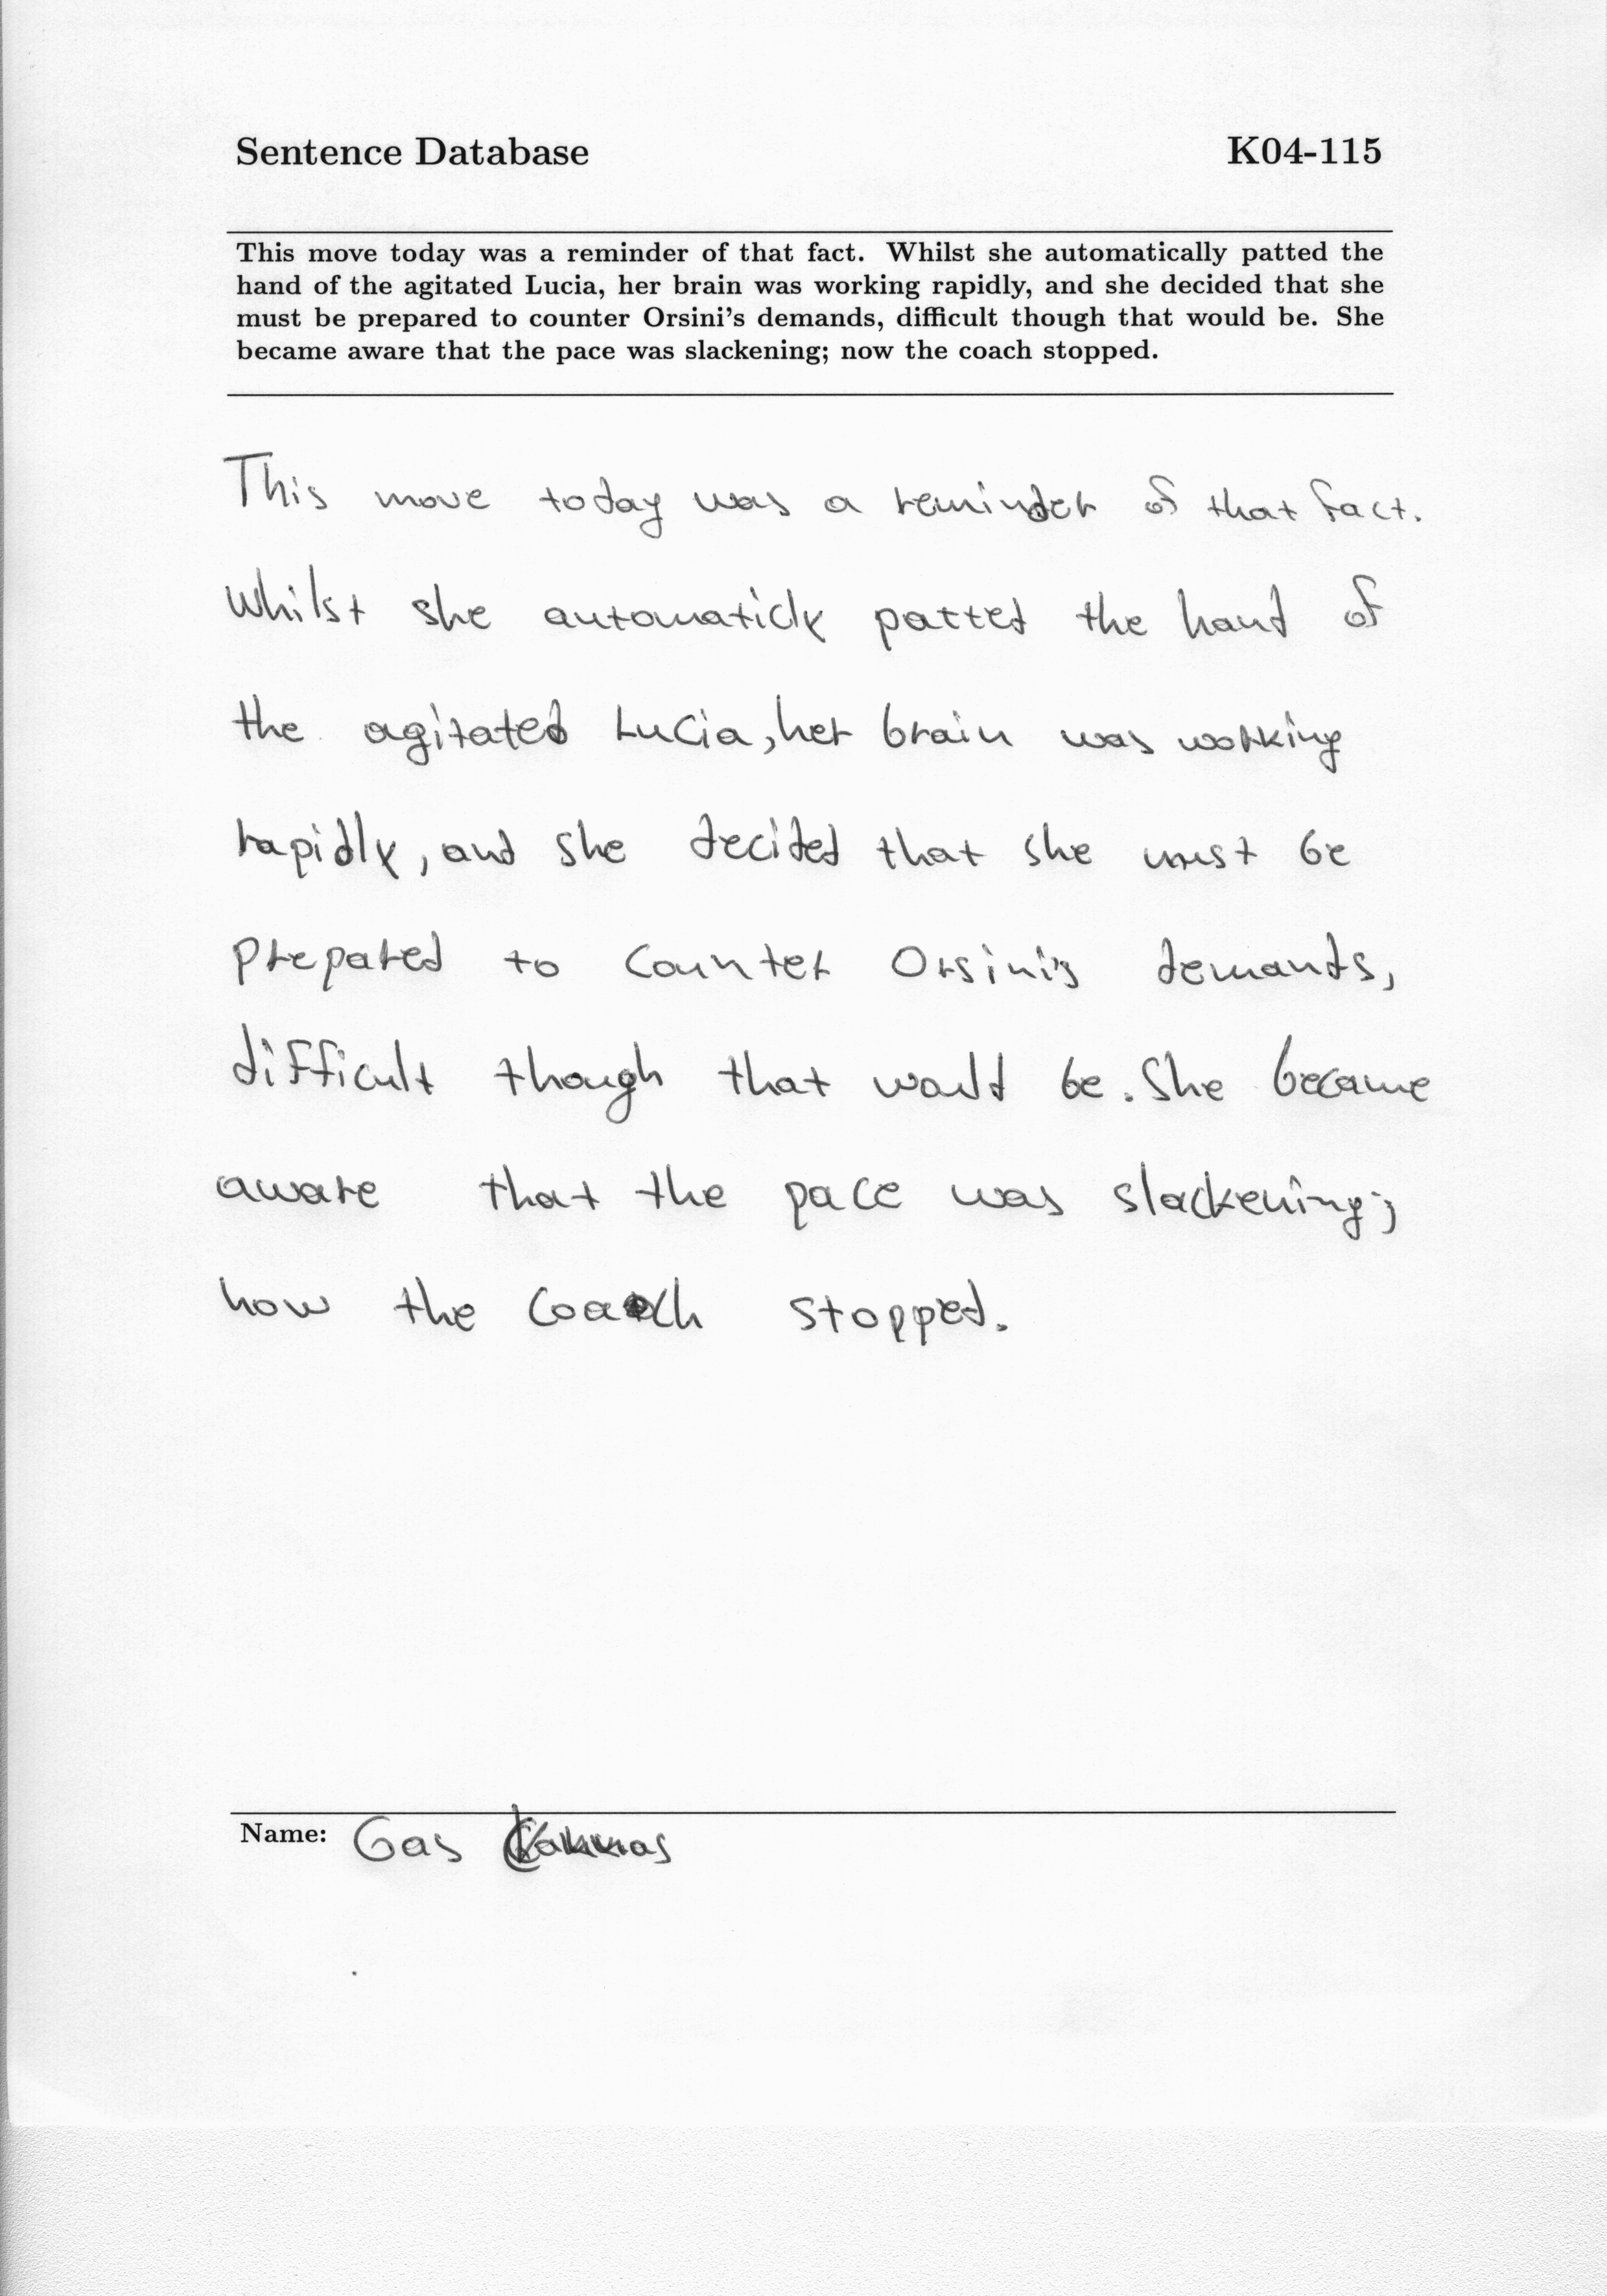 Sentence Database K04-115
This move today was a reminder of that fact. Whilst she automatically patted the
hand of the agitated Lucia, her brain was working rapidly, and she decided that she
must be prepared to counter Orsini's demands, difficult though that would be. She
became aware that the pace was slackening; now the coach stopped.
This move today was a reminder of that fact.
Whilst she automaticly patted the hand of
the agitated Lucia, her brain was working
rapidly, and she decided that she must be
prepared to counter Orsini's demands,
difficult though that would be. She became
aware that the pace was slackening;
now the coach stopped.
Name: Gas